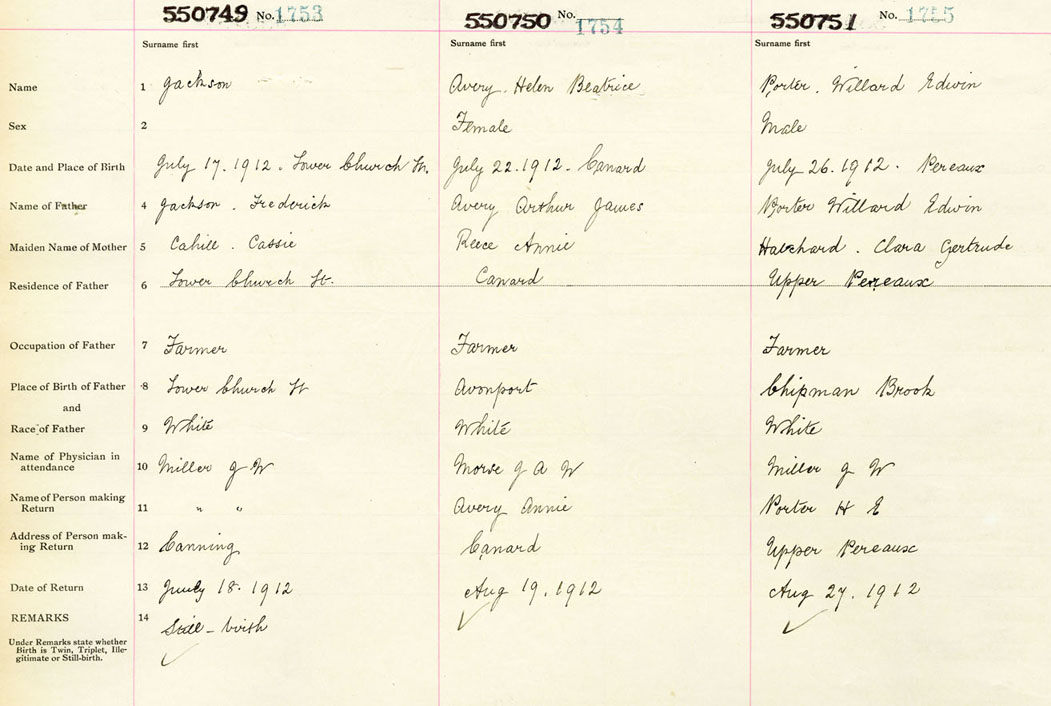 550749 No. 1753 550750 No. 1754 550751 No. 1755
Surname first Surname first Surname first
Name 1 Jackson Avery. Helen Beatrice Porter. Willard Edwin
Sex 2 Female Male
Date and Place of Birth July 17. 1912. Lower Church St. July 22. 1912. Canard July 26. 1912. Pereaux
Name of Father 4 Jackson. Frederick Avery Arthur James Porter Willard Edwin
Maiden Name of Mother 5 Cahill. Cassie Reece Annie Clara Gertrude
Residence of Father 6 Lower Church St. Canard Upper Pereaux
Occupation of Father 7 Farmer Farmer Farmer
Place of Birth of Father 8 Lower Church St Avonport Chipman Brook
and
Race of Father 9 White White White
Name of Physician in
attendance 10 Miller J W Morse J A W Miller J W
Name of Person making
Return 11 " " Avery Annie Porter H E
Address of Person mak-
ing Return 12 Canning Canard Upper Pereaux
Date of Return 13 18. 1912 Aug 19. 1912 Aug 27. 1912
REMARKS 14 Still-birth
Under Remarks state whether
Birth is Twin, Triplet, Ille-
gitimate or Still-birth.